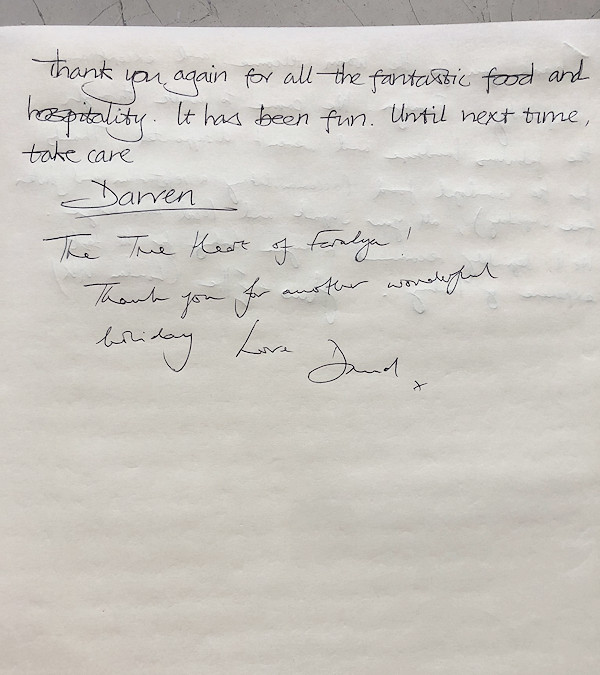 Thank you again for all the fantastic food and
hospitality. It has been fun. Until next time,
take care
Darren
The True Heart of Faralya!
Thank you for another wonderful
holiday Love David x